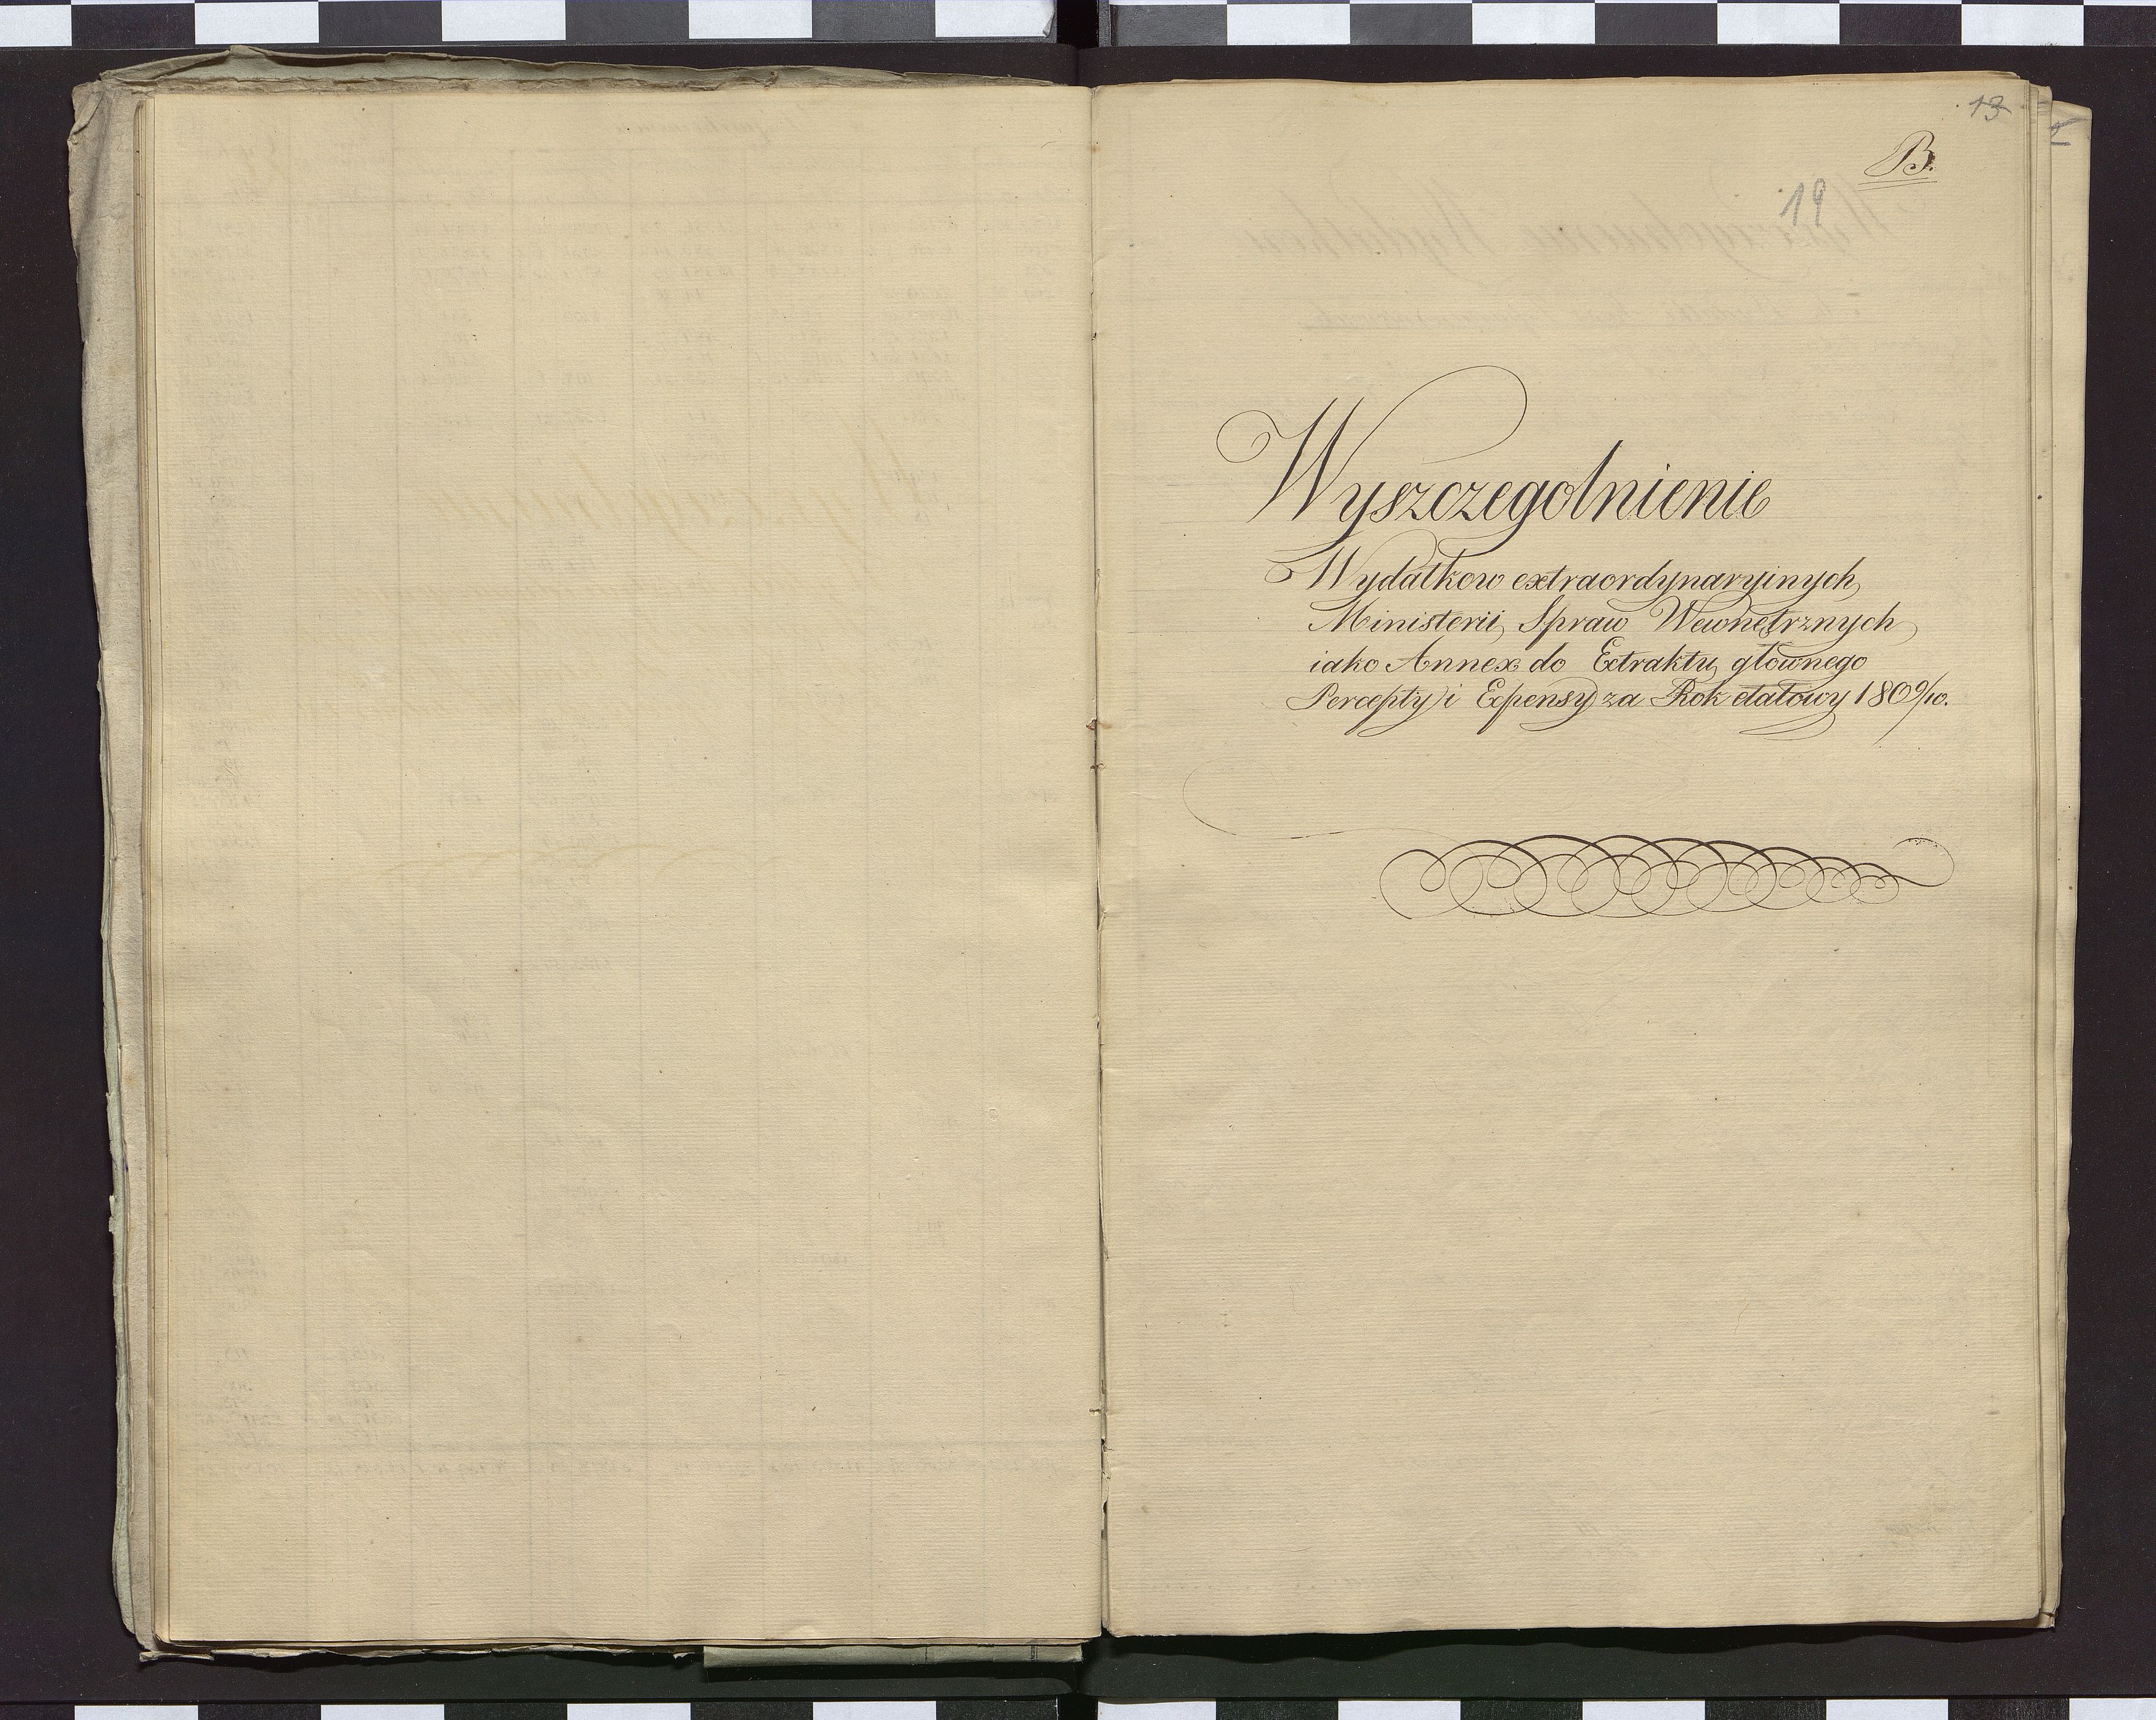 13
B.
19
Wyszczegolnienie
Wydatkow extraordynaryinych
Ministerii Spraw Wewnętrznych
iako Annex do Extraktu głownego
Percepty i Expensy za Rok etatowy 1809/10.